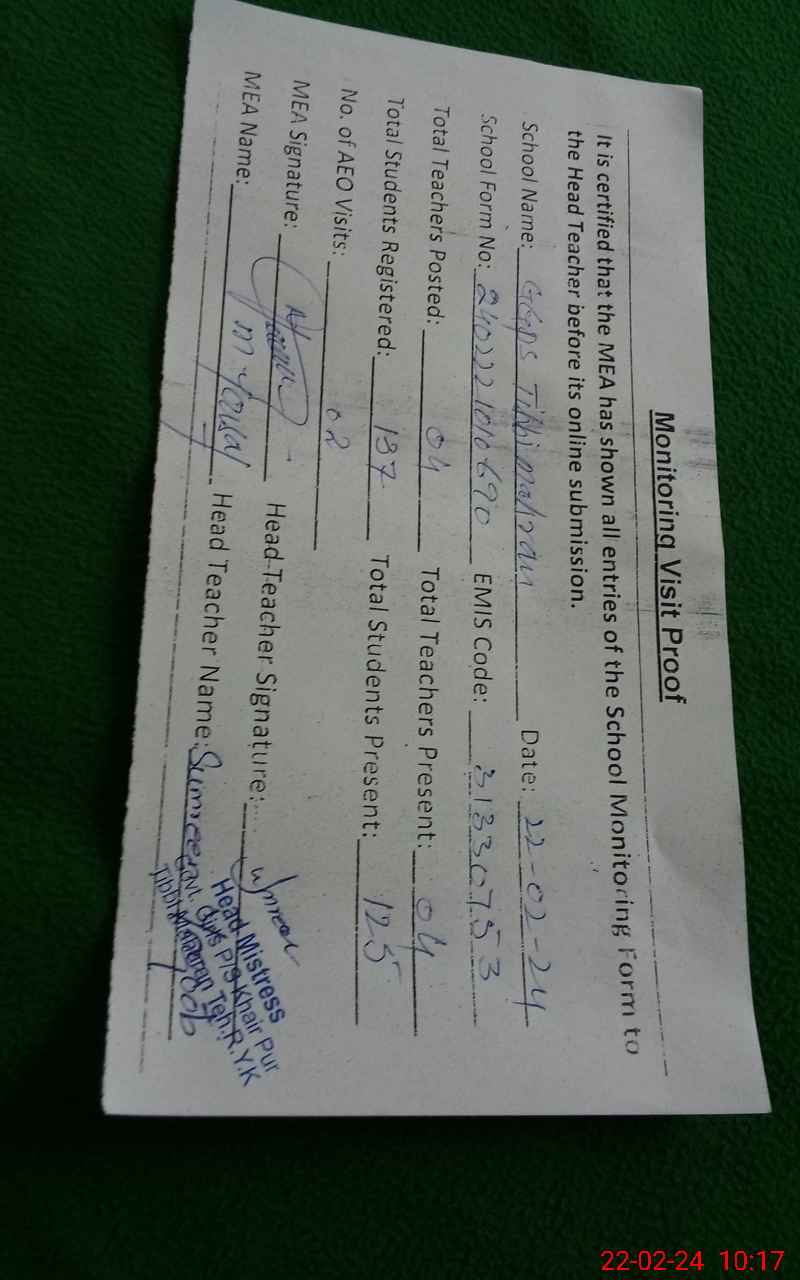 Monitoring Visit Proof
It is certified that the MEA has shown all entries of the School Monitoring Form to
the Head Teacher before its online submission.
School Name: GGPS Tibbi mahran Date: 22-02-24
School Form No: 2402221010690 EMIS Code: 31330753
Total Teachers Posted: 04 Total Teachers Present: 04
Total Students Registered: 137 Total Students Present: 125
No. of AEO Visits: 02
MEA Signature: Head Teacher Signature:
MEA Name: Head Teacher Name:
Head Mistress
Govt. Girls P/S Khair Pur
Tibbi Teh. R.Y.K
22-02-24 10:17